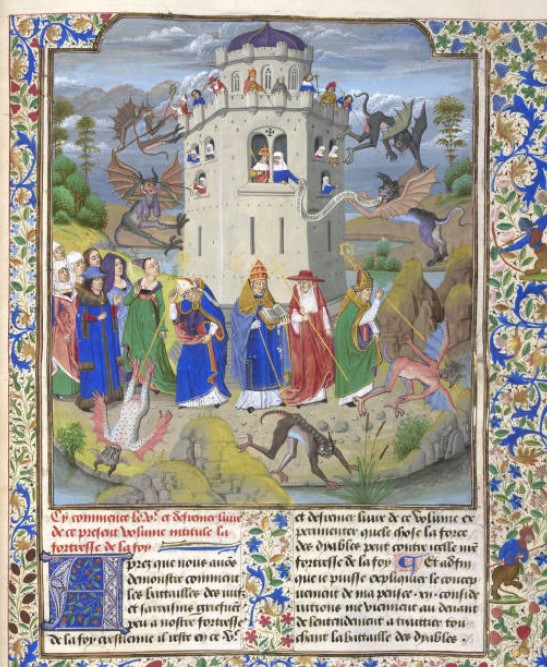 Cy commence le v.e et desrenier liure
de ce present volume intitule la
fortresse de la foy
Apres que nous auõs
demonstre comment
les batailles des iuifz
et sarrasins griefuēt
peu a nostre fortresse
de la foy crestienne il reste en ce v.e
et desrenier liure de ce volume ex
perimenter quele chose la force
des dyables peut contre icelle nr̄e
fortresse de la foy Et adfin
que ie puisse expliquer le concep
uement de ma penser xij. conside
rations me viennent au deuant
de lentendement a traittier tou
chant la bataille des dyables